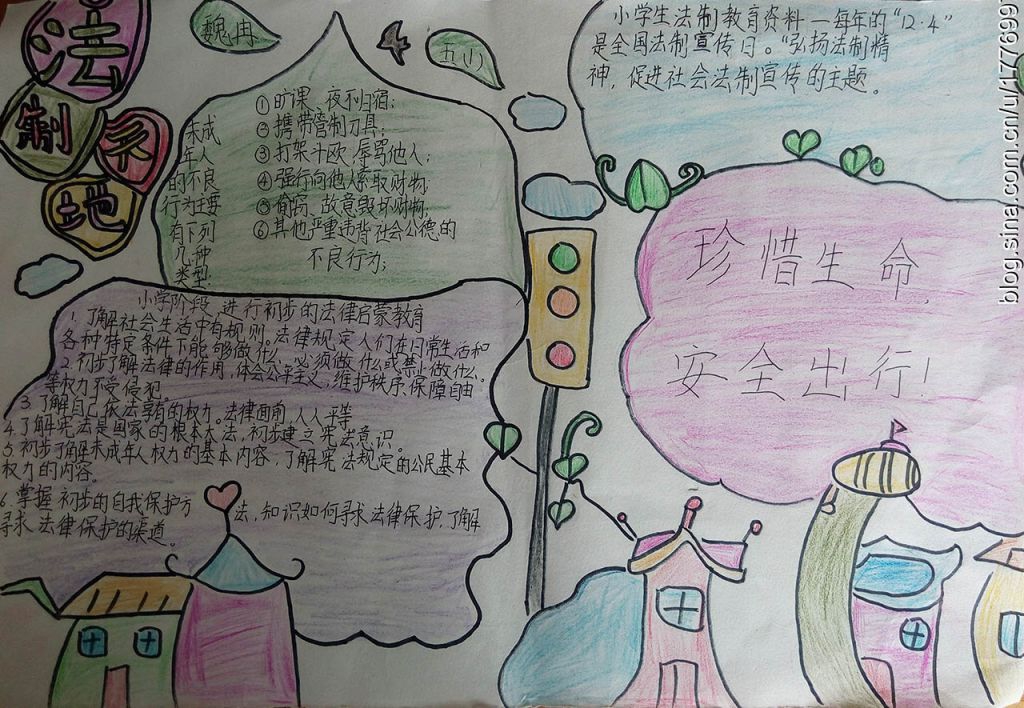 法
制
天
地
魏冉
五(1)
未成
年人
的不良
行为主要
有下列
几种
类型:
①旷课、夜不归宿;
②携带管制刀具;
③打架斗殴、辱骂他人;
④强行向他人索取财物
⑤偷窃、故意毁坏财物;
⑥其他严重违背社会公德的
不良行为;
小学生法制教育资料一每年的"12·4"
是全国法制宣传日。"弘扬法制精
神,促进社会法制宣传的主题。
珍惜生命,
安全出行!
小学阶段,进行初步的法律启蒙教育
1.了解社会生活中有规则,法律规定人们在日常生活和
各种特定条件下能够做什么,必须做什么或禁止做什么。
2.初步了解法律的作用,体会公平主义,维护秩序,保障自由
等权力不受侵犯。
3.了解自己依法享有的权力。法律面前,人人平等
4.了解宪法是国家的根本大法,初步建立宪法意识。
5.初步了解未成年人权力的基本内容,了解宪法规定的公民基本
权力的内容。
6.掌握初步的自我保护方法,知识如何寻求法律保护,了解
寻求法律保护的渠道。
blog.sina.com.cn/u/1777699